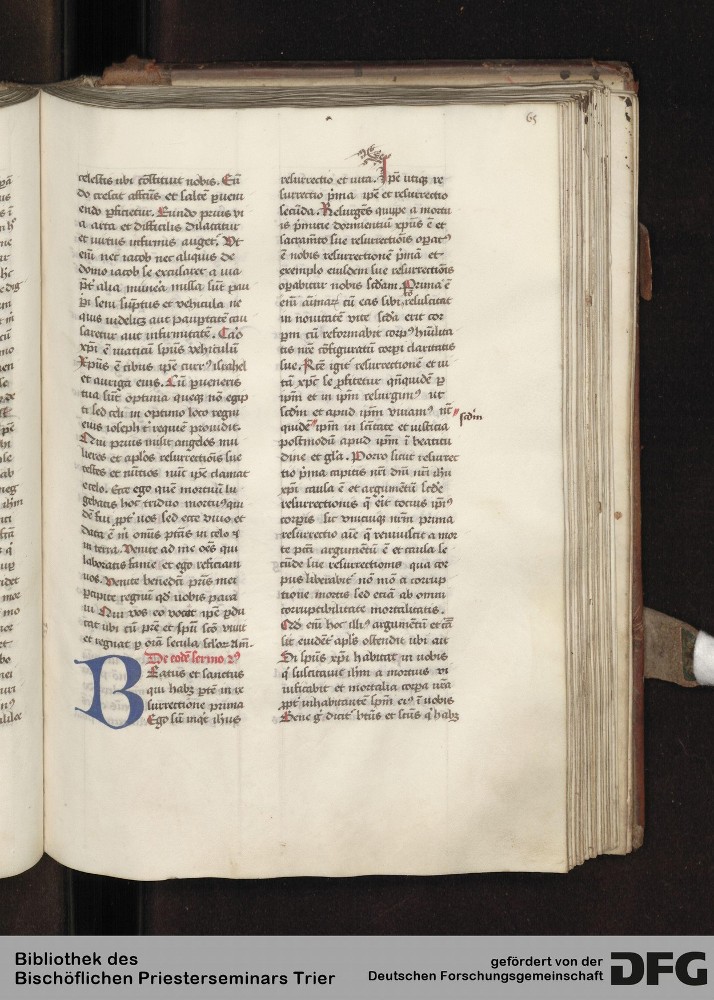 65
celestis ubi cōstituit nobis. Eū
do crescit affctus et saltē ꝑueni
endo ꝑficietur. Eundo prius vi
a arta et difficilis dilatatur
et virtus infirmis augetᷣ. Vt
eīm nec iacob nec aliquis de
domo iacob se excusaret a via
p̄t alia munēa missa sūt pau
ꝑi seni sūptus et vehicula ne
quis videlicꝫ aut paupertatē cau
saretur aut infirmitatē. Caro
xp̄i ē viaticū sp̄us vehiculū
Xp̄us ē cibus ipe currꝰ israhel
et auriga eius. Cū ꝑueneris
tua sūt optima queqꝫ nō egip
ti sed celi in optimo loco regni
eius ioseph te requiē prouidit.
Qui prius misit angelos mu
lieres et aplos resurrectiōis sue
testes et nūtios nūc ip̄e clamat
e celo. Ecce ego quē mortuū lu
gebatis hoc triduo mortuꝰ qui
dē fui ꝓpt̄ uos sed ecce viuo et
data ē m̄ omīs ptās in celo ⁊
in terra. Venite ad me oēs qui
laboratis fame et ego reficiam
uos. Venite benedcī pr̄is mei
ꝑcipite regnū qd̄ uobis para
tū Qui vos eo vocat ip̄e ꝑdu
cat ubi cū pr̄e et sp̄u scō viuit
et regnat ꝑ oīa secula sc̄lorꝫ Am̄.
De eodē sermo vꝰ
Beatus et sanctus
qui habꝫ ptē in re
surrectione prima
Ego sū inqt ihus
resurrectio et vita. Ip̄e utiqꝫ re
surrectio p̄ima ip̄e et resurrectio
secūda. Resurgēs quippe a mortu
is p̄mitie dormientiū xp̄us ē et
sacramēto sue resurrectiōis oꝑatꝰ
ē nobis resurrectionē p̄imā et
exemplo eiusdem sue resurrectiōis
oꝑabitur nobis scdam. Prima ē
eīm aīmarꝫ cū eas sibi resuscitat
in nouitatē vite scda erit cor
poꝝ cū reformabit corpꝰ hūilita
tis nrē cōfiguratū corpi claritatis
sue. Rcē igit resurrectionē et vi
tā xp̄c se ꝓfitetur qn̄quidē ꝑ
ip̄m et in ip̄m resurgimꝰ ut
scdm et apud ip̄m viuamꝰ nc̄
quidē ip̄m in scītate et iustitia scdm
postmodū apud ip̄m ī beatitu
dine et gl̄a. Porro sicut resurrec
tio p̄ima capitis nrī dn̄i nrī ihu
xp̄i causa ē et argumētū scde
resurrectionis q̄ erit totius ip̄iꝰ
corpis sic vniuscuiꝰ nr̄m prima
resurrectio aīe q̄ reuiuiscit a mor
te pctī argumētū ē et causa se
cūde sue resurrectionis qua cor
pus liberabit nō mō a corrup
tione mortis sed etiā ab omni
corruptibilitate mortalitatis.
Qd̄ eīm hoc illiꝰ argumētū et cā
sit euidēt apls ostendit ubi ait
Si sp̄us xp̄i habitat in uobis
q̄ suscitauit ihm a mortuis vi
uificabit et mortalia corpa vrā
ꝓpt inhabitantē sp̄m eiꝰ ī uobis
Bene g̊ dicit btūs et scūs q̄ habꝫ
Bibliothek des
Bischöflichen Priesterseminars Trier
gefördert von der
Deutschen Forschungsgemeinschaft
DFG